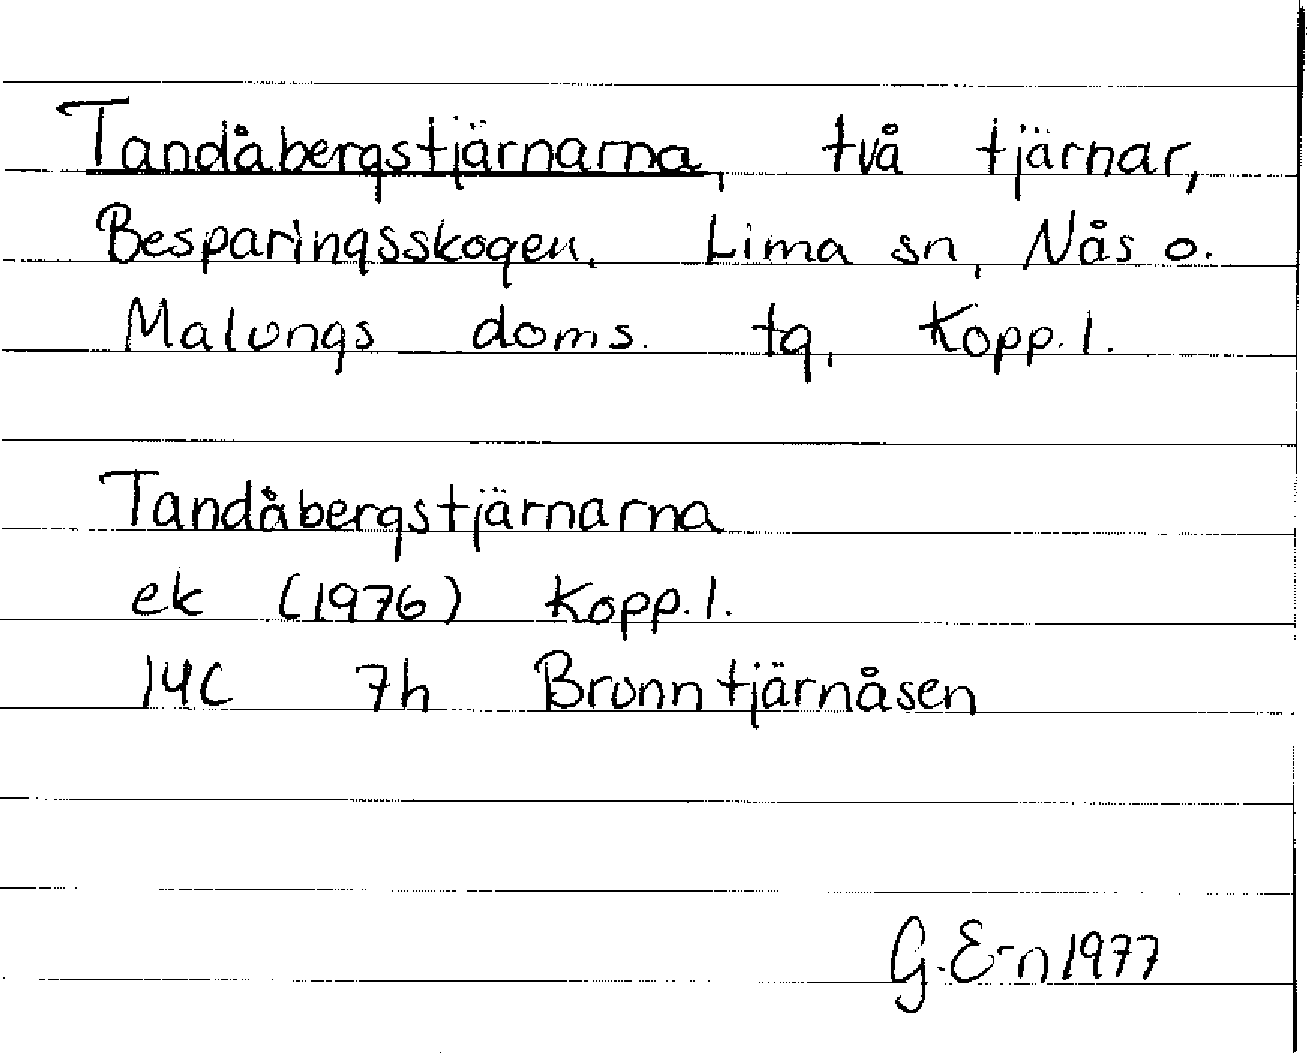 Tandåbergstjärnarna, två tjärnar,
Besparingsskogen, Lima sn, Nås o.
Malungs doms. tg, Kopp. l.
Tandåbergstjärnarna
ek (1976) Kopp. l.
14C 7h Brunntjärnåsen
G. E-n 1977